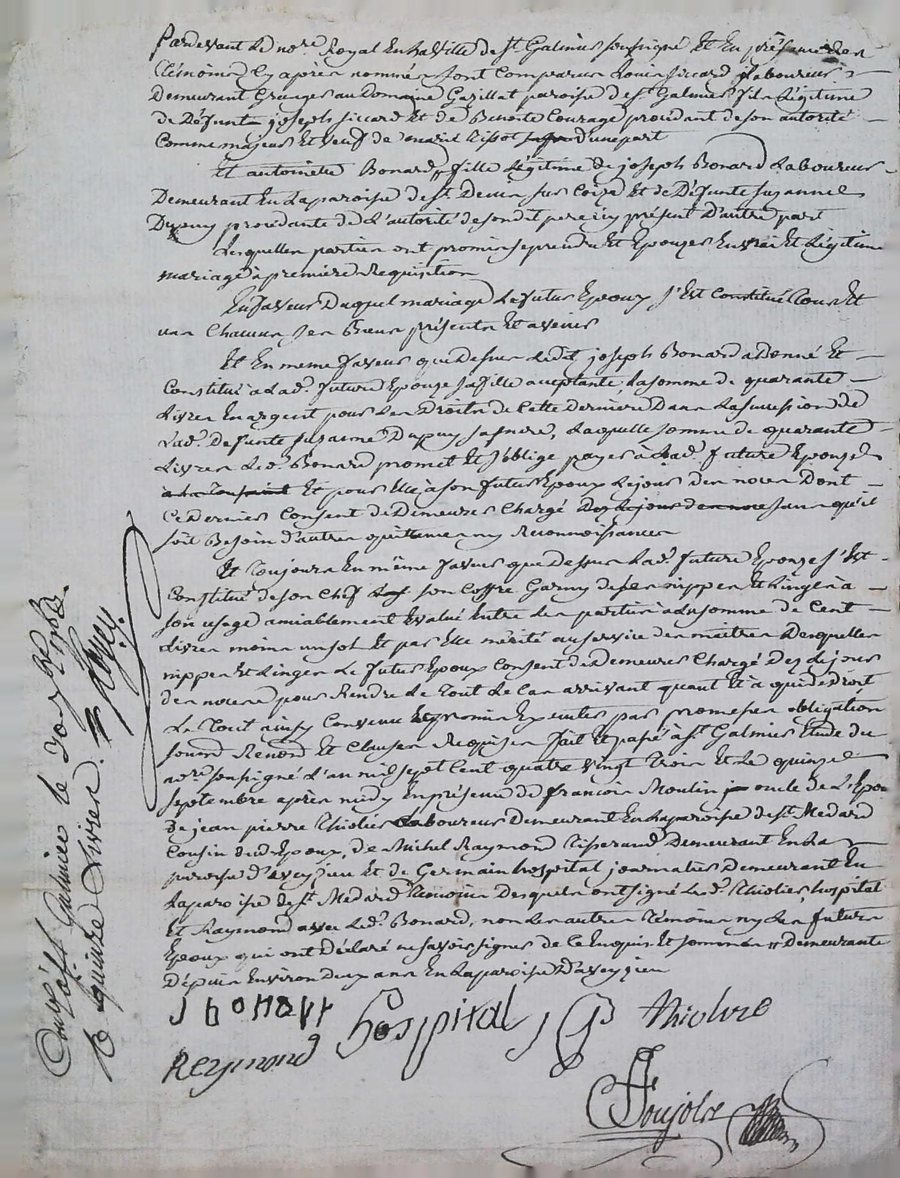 Pardevant Le no.re Royal En La Ville de S.t Galmier soussigné Et En présence des
témoins Cy après nommés sont Comparus Louis siccard Laboureur
Demeurant Granger au Domaine Gazillat paroisse de S.t Galmier fils Légitime
de Défunt joseph siccard Et de Benoite Courage procédant de son autorité
Comme majeur Et veuf de marie d'une part
Et antoinette Bonard fille Légitime de joseph Bonard Laboureur
Demeurant En La paroisse de S.t Denis sur Coize Et de Défunte Suzanne
Dupuy procédante de L'autorité de son dit pere icy présent D'autre part
Lesquelles parties ont promis se prendre Et Epouzer En vrai Et Légitime
mariage à premiere Requisition
En faveur Duquel mariage Le futur Epoux s'Est Constitué tous Et
un Chacun ses Biens présents Et avenir
Et En meme faveur que dessus Ledit joseph Bonard a Donné Et
Constitué a Lad. future Epouze sa fille acceptante La somme de quarante
Livres En argent pour Les Droits de Cette Derniere Dans La succession de
Lad. Defunte suzanne Dupuy sa mere, Laquelle somme de quarante
Livres Led. Bonard promet Et s'oblige payer à Lad. future Epouze
à la Toussaint Et pour Elle à son futur Epoux Le jour des noces Dont
Ce Dernier Consent de Demeurer Chargé Dez Le jour des noces sans qu'il
soit Besoin d'autres quittances ny Reconnoissances
Et toujours En même faveur que Dessus Lad. future Epouze s'Est
Constitué de son Chef son Coffre Garny de ses nippes Et Linges à
son usage amiablement Evalué Entre Les parties a La somme de Cent
Livres moins un sol Et par Elle mérité au service des maitres Desquelles
nippes Et Linges Le futur Epoux Consent de Demeurer Chargé Dez Le jour
des noces pour Rendre Le Tout Le Cas arrivant quant Et à qui de Droit
Le Tout ainsy Convenu Et promis Executer par promesses obligation
soumd Renond Et Clauses Requises fait Et passé à S.t Galmier Etude du
no.re soussigné L'an mil sept Cent quatre vingt trois Et Le quinze
septembre après midy En présence de francois Moulin oncle de L'Epoux
De jean pierre Thiolier Laboureur Demeurant En La paroisse de S.t Medard
Cousin dud Epoux, de Michel Raymond Tisserand Demeurant En La
paroisse d'aveyzieu Et de Germain hospital journalier Demeurant En
La paroisse de S.t Medard Témoins Desquels ont signé Led. Thiolier, hospital
Et Raymond avec Led. Bonard, non Les autres Témoins ny Les futurs
Epoux qui ont Déclaré ne savoir signer de Ce Enquis Et sommés Demeurante
Depuis Environ Deux ans En La paroisse D'aveyzieu
J bonart hospital J P thiolire
Reymond
Poujolre
Controlé à S.t Galmier le
R quinze Livres.